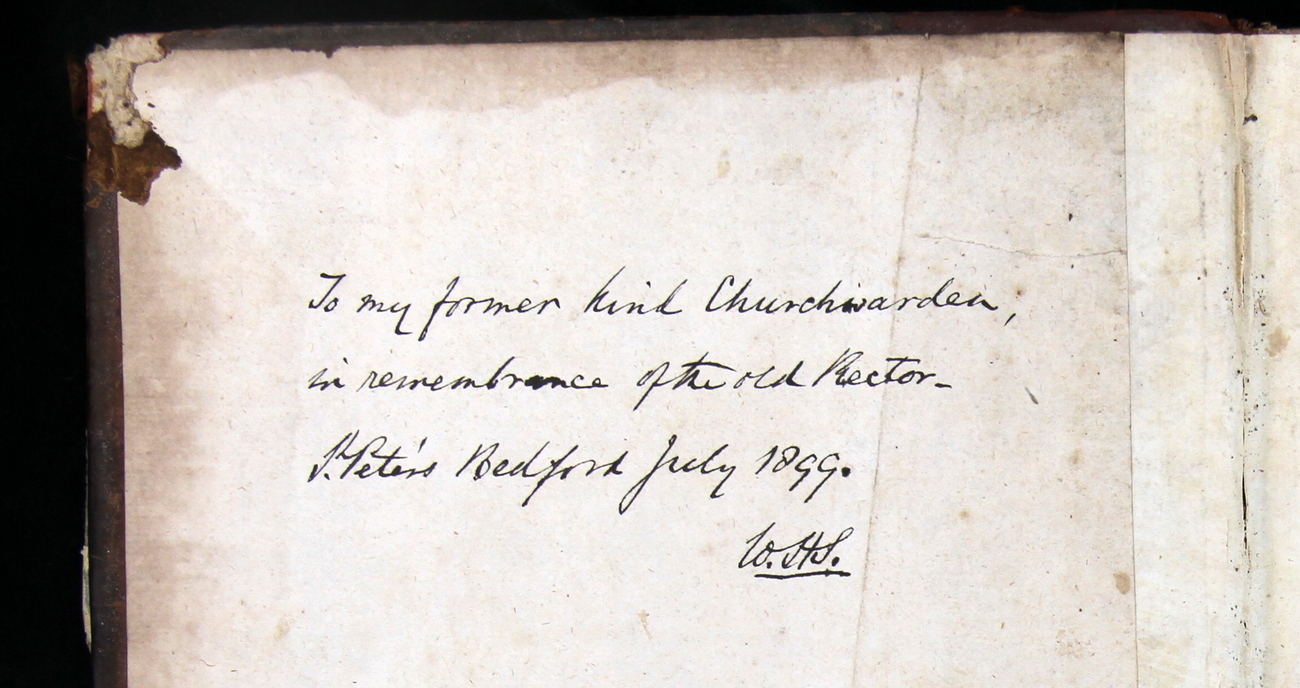 To my former kind Churchwarden,
in remembrance of the old Rector-
St. Peter's Bedford July 1899.
W.H.S.